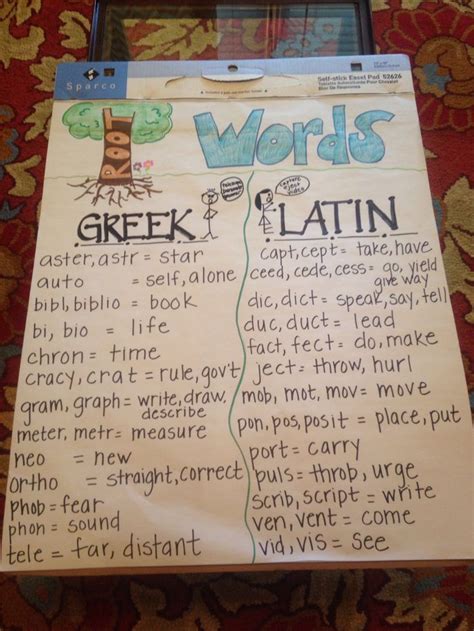 Sparco
Self-stick Easel Pad 52626
ROOT
Words
GREEK
aster, astr = star
auto = self, alone
bibl, biblio = book
bi, bio = life
chron = time
cracy, crat = rule, gov't
gram, graph = write, draw,
describe
meter, metr = measure
neo = new
ortho = straight, correct
phob = fear
phon = sound
tele = far, distant
LATIN
capt, cept = take, have
ceed, cede, cess = go, yield
give way
dic, dict = speak, say, tell
duc, duct = lead
fact, fect = do, make
ject = throw, hurl
mob, mot, mov = move
pon, pos, posit = place, put
port = carry
puls = throb, urge
scrib, script = write
ven, vent = come
vid, vis = see